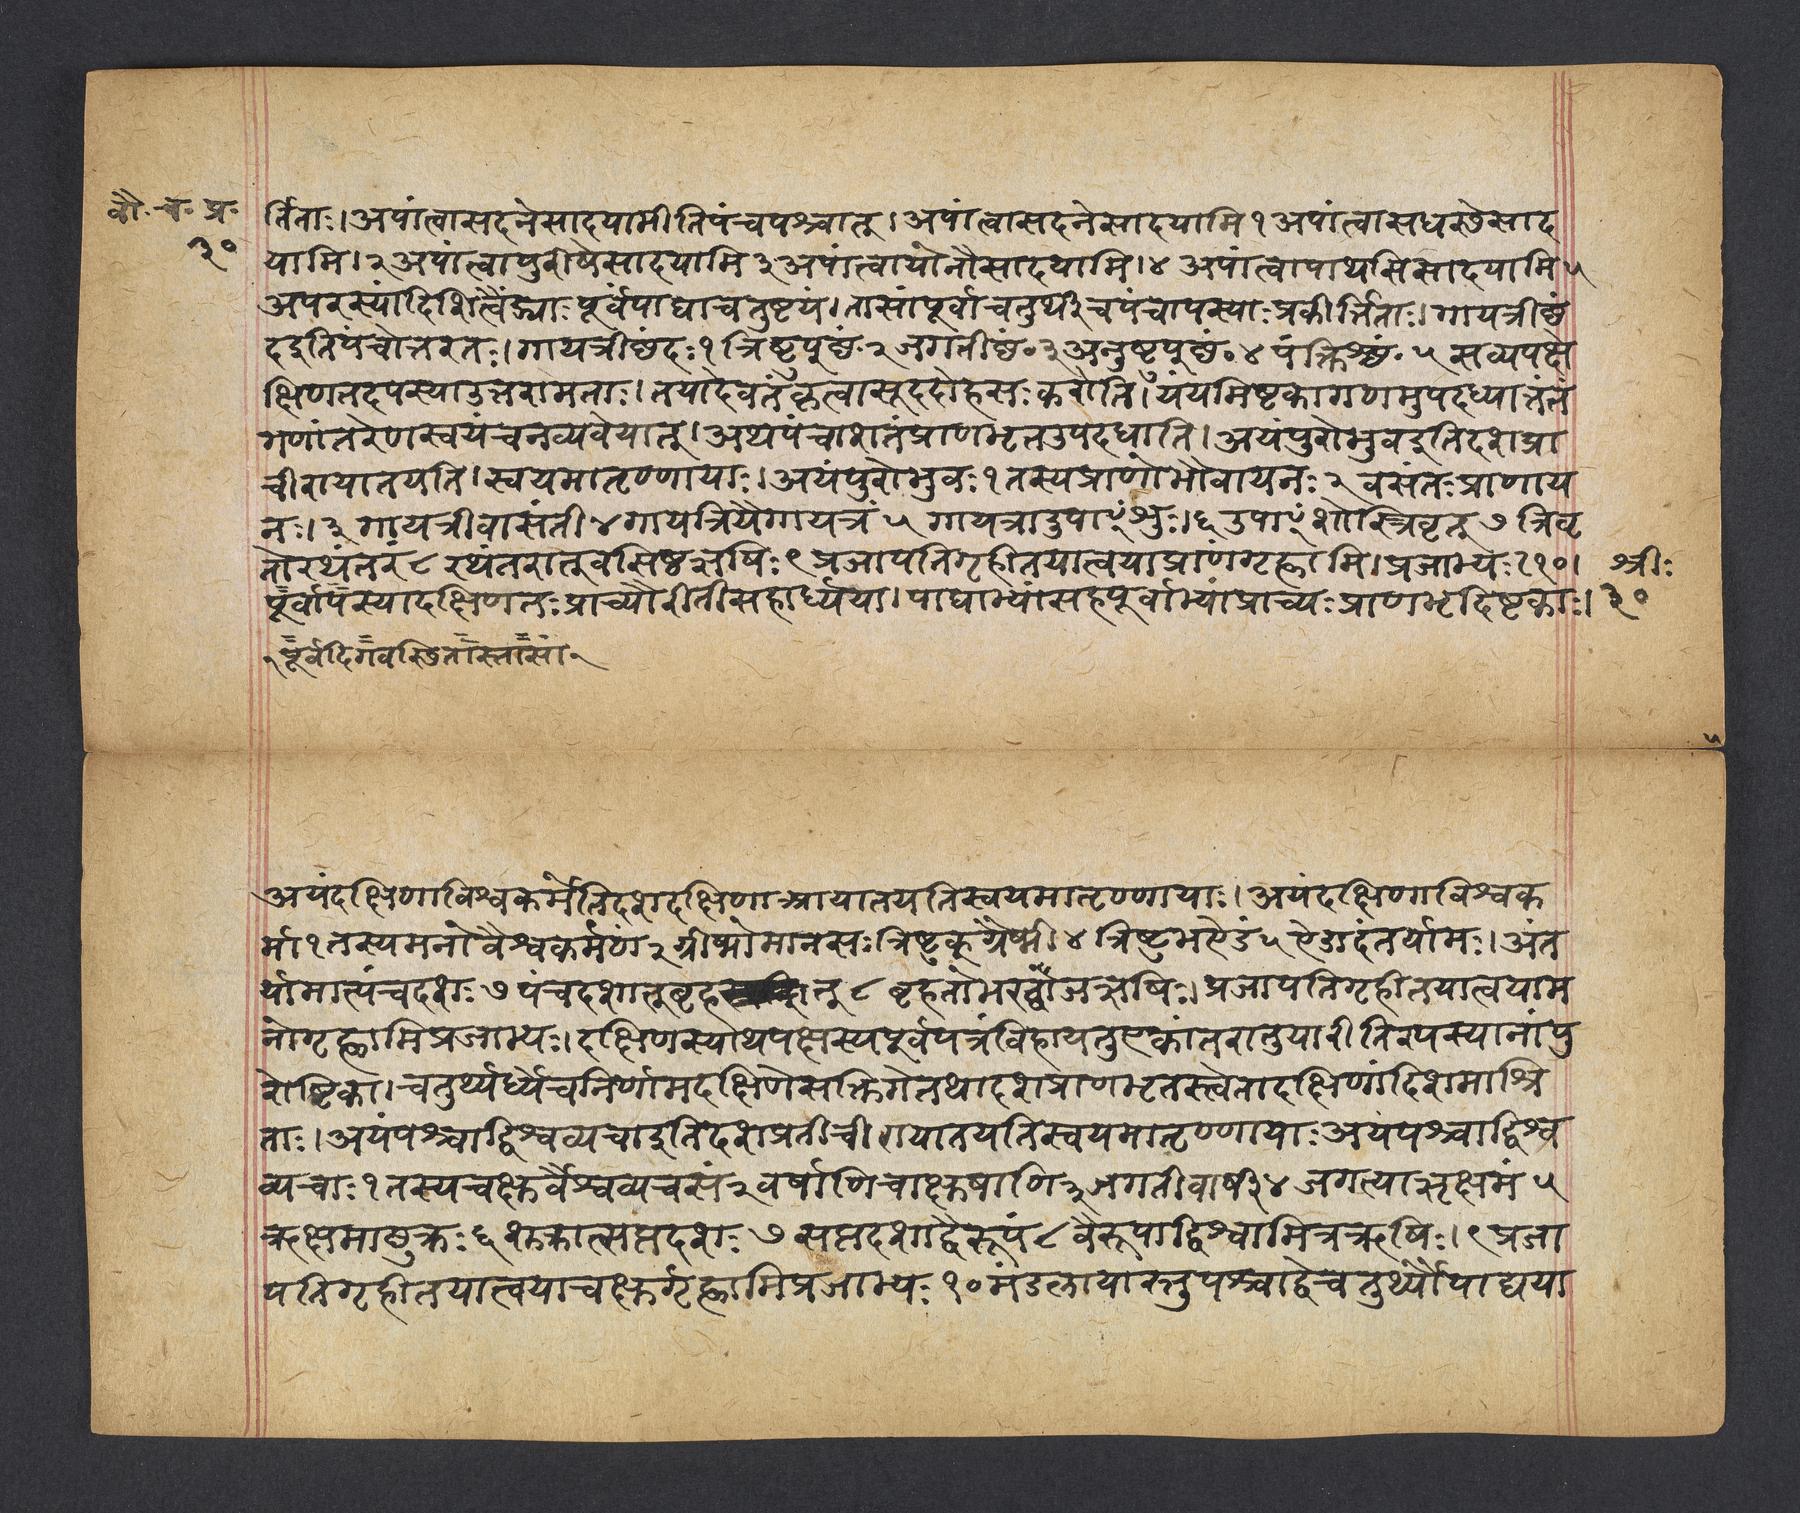 बौ. च. प्र.
३०
र्तिताः। अपांत्वासदनेसादयामीतिपंचपश्चात्। अपांत्वासदनेसादयामि १ अपांत्वासधस्थेसाद
यामि। २ अपांत्वापुरीषेसादयामि ३ अपांत्वायोनौसादयामि। ४ अपांत्वापाथसिसादयामि ५
अपरस्यांदिशित्वैंद्र्याः पूर्वंपाद्याचतुष्टयं। तासांपूर्वाचतुर्थीचपंचापस्याः प्रकीर्त्तिताः। गायत्रीछं
दइतिपंचोत्तरतः। गायत्रीछंदः १ त्रिष्टुप्छं॰ २ जगतीछं॰ ३ अनुष्टुप्छं॰ ४ पंक्तिश्छं॰ ५ सव्यपक्षे
क्षिणतदपस्याउत्तरामताः। तयादेवतंकृत्वासूददोहसः करोति। यंयमिष्टकागणमुपदध्यात्तंतं
गणांतरेणस्वयंचनव्यवेयात्। अथपंचाशतंप्राणभृतउपदधाति। अयंपुरोभुवइतिदशप्रा
चीरायातयति। स्वयमातृण्णायाः। अयंपुरोभुवः १ तस्यप्राणोभौवायनः २ वसंतः प्राणाय
नः। ३ गायत्रीवासंती ४ गायत्रियैगायत्रं ५ गायत्रादुपाꣳशुः। ६ उपाꣳशोस्त्रिवृत् ७ त्रिवृ
तोरथंतरं ८ रथंतरात्वसिष्ठऋषिः ९ प्रजापतिगृहीतयात्वयाप्राणंगृह्णामि। प्रजाभ्यः। १०।
श्रीः
पूर्वापस्यादक्षिणतः प्राच्यौरीतीसहार्ध्यया। पाद्याभ्यांसहपूर्वाभ्यांप्राच्यः प्राणभृदिष्टकाः।
३०
पूर्वदिगवस्थितास्तासां
अयंदक्षिणाविश्वकर्मेतिदशदक्षिणाआयातयतिस्वयमातृण्णायाः। अयंदक्षिणाविश्वक
र्मा १ तस्यमनोवैश्वकर्मणं २ ग्रीष्मोमानसः त्रिष्टुक्ग्रैष्मी ४ त्रिष्टुभऐडं ५ ऐडादंतर्यामः। अंत
र्यामात्पंचदशः ७ पंचदशात्बृह त् ८ बृहतोभरद्वाजऋषिः। प्रजापतिगृहीतयात्वयाम
नोगृह्णामिप्रजाभ्यः। दक्षिणस्याथपक्षस्यपूर्वपत्रंविहायतुएकांतरातुयारीतिरपस्यानांपु
रोष्टिका। चतुर्थ्यर्ध्येचनिर्णामदक्षिणेसक्तिगेतथादशप्राणभृतस्त्वेतादक्षिणांदिशमाश्रि
ताः। अयंपश्चाद्विश्वव्यचाइतिदशप्रतीचीरायातयतिस्वयमातृण्णायाः अयंपश्चाद्विश्व
व्यचाः १ तस्यचक्षुर्वैश्वव्यचसं २ वर्षाणिचाक्षुषाणि ३ जगतीवार्षी ४ जगत्याऋक्षमं ५
ऋक्षमाछुक्रः ६ शुक्रात्सप्तदशः ७ सप्तदशाद्वैरूपं ८ वैरूपाद्विश्वामित्रऋषिः। ९ प्रजा
पतिगृहीतयात्वयाचक्षुर्गृह्णामिप्रजाभ्यः १० मंडलायांस्तुपश्चाद्द्वेचतुर्थ्यौपाद्यया